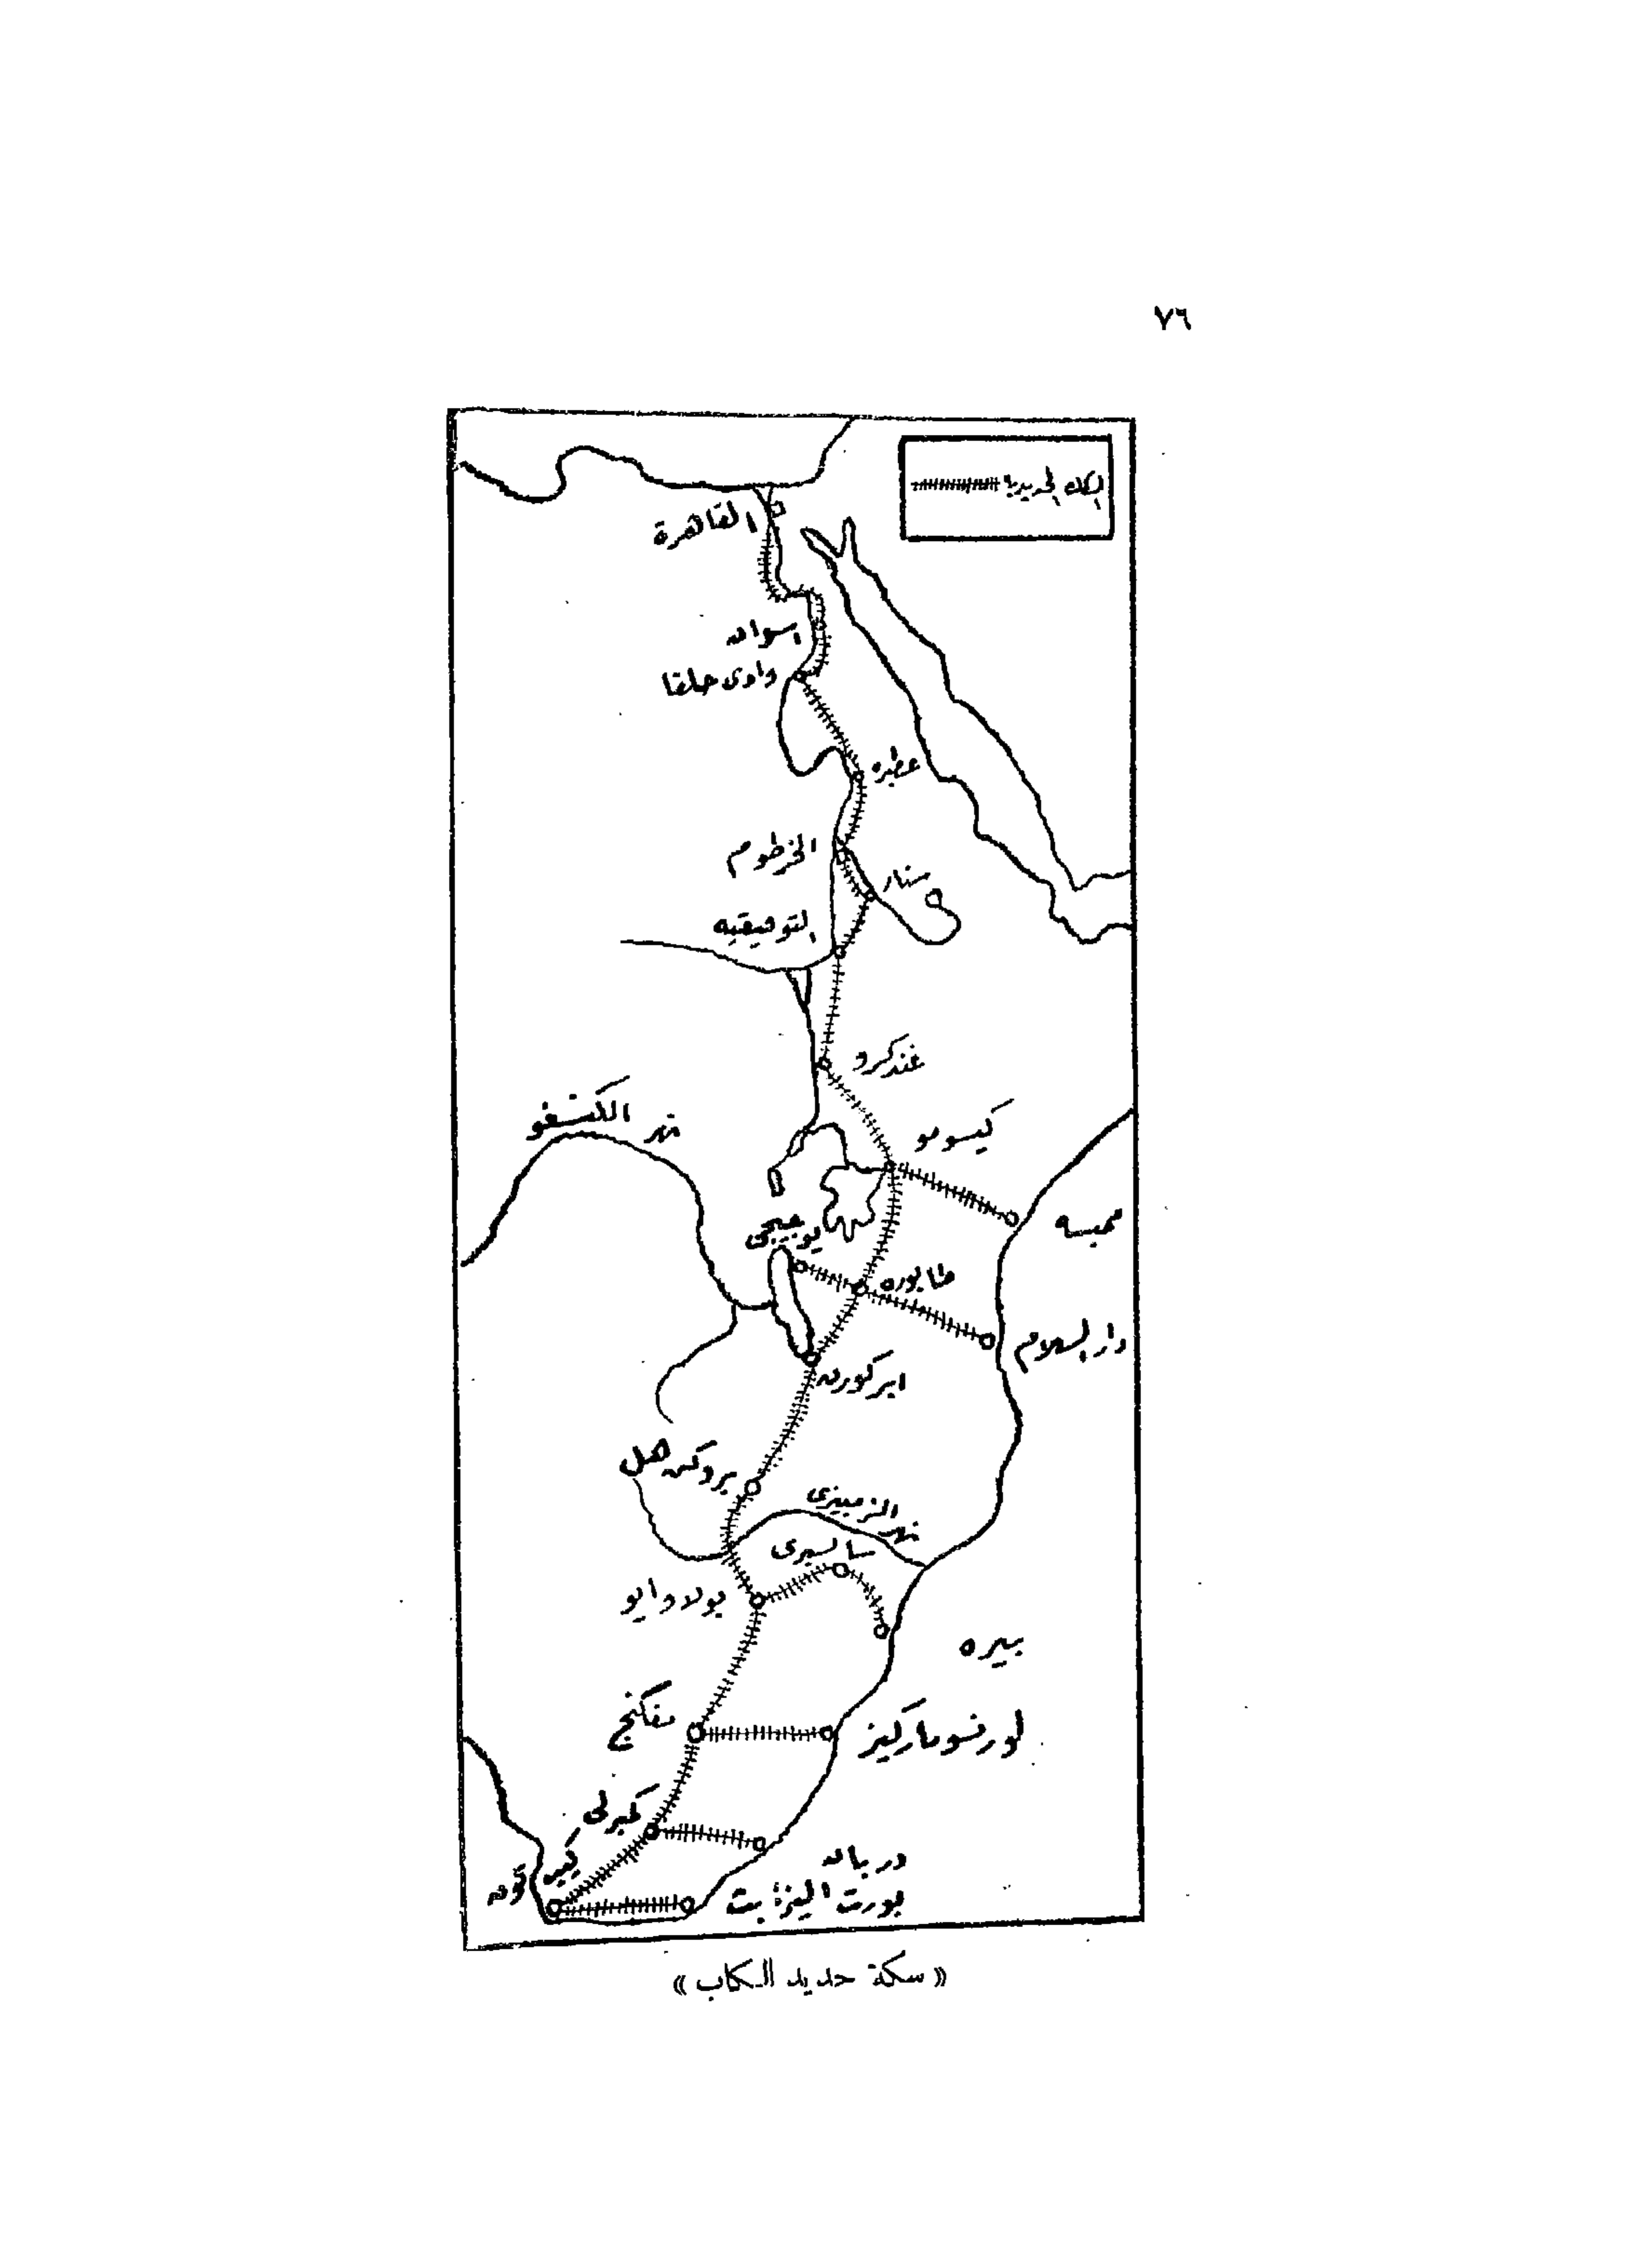 ٧٦
السكك الحديدية
القاهرة
اسوان
وادى حلفا
عطبره
الخرطوم
سنار
التوفيقيه
غندكرو
نهر الكنغو
كيسومو
ممبسه
يوجيجى
طابوره
دار السلام
ابركورن
بروكن هل
نهر الزمبيزى
سالسبرى
بولاوايو
بيره
مفكنج
لورنسو ماركيز
كمبرلى
كيب تون
دربان
بورت اليزابت
« سكة حديد الكاب »